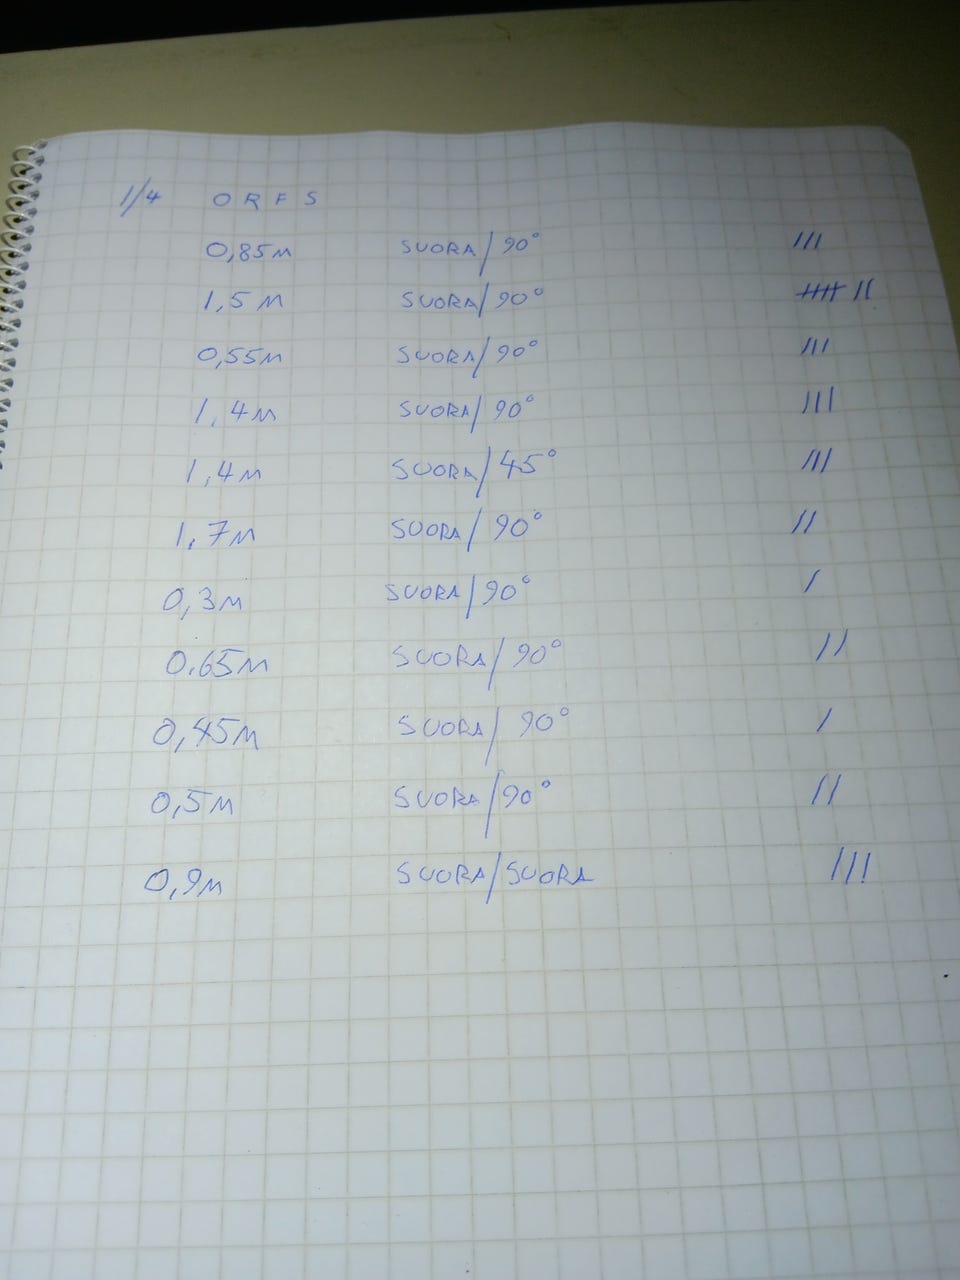 1/4 ORFS
0,85M SUORA/90° ///
1,5M SUORA/90° //// //
0,55M SUORA/90° ///
1,4M SUORA/90° ///
1,4M SUORA/45° ///
1,7M SUORA/90° //
0,3M SUORA/90° /
0.65M SUORA/90° //
0,45M SUORA/90° /
0,5M SUORA/90° //
0,9M SUORA/SUORA ///